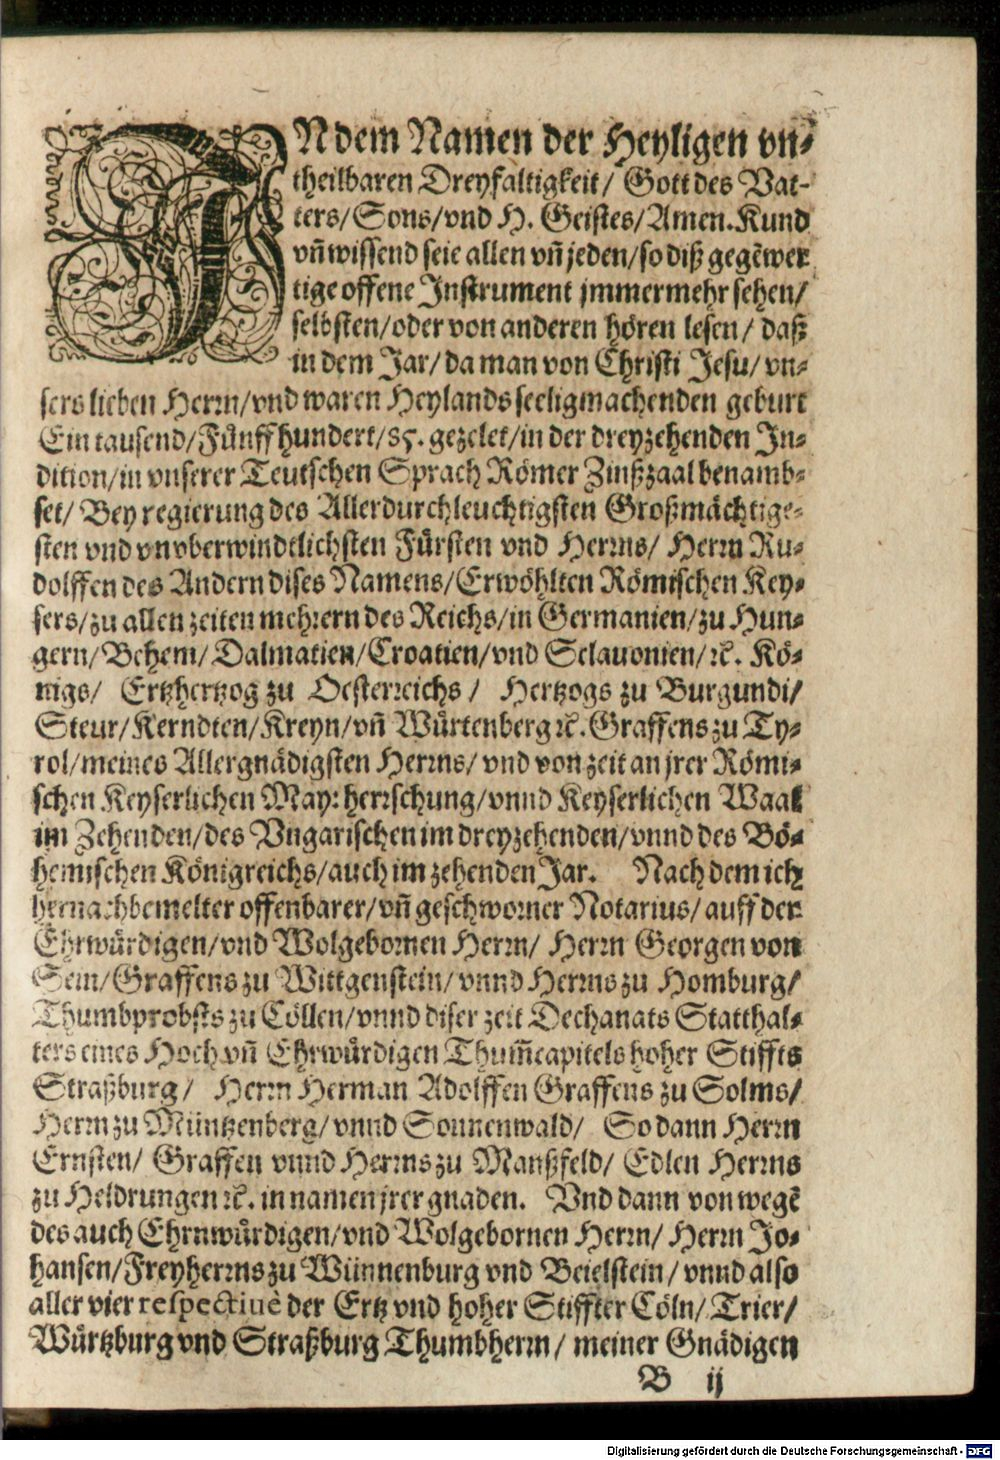 IN dem Namen der Heyligen vn⸗
theilbaren Dreyfaltigkeit/ Gott des Vat-
ters/Sons/vnd H. Geistes/Amen. Kund
vñ wissend seie allen vñ jeden/so diß gegẽwer
tige offene Instrument jmmermehr sehen/
selbsten/oder von anderen hören lesen/ daß
in dem Jar/ da man von Christi Jesu/ vn⸗
sers lieben Herrn/vnd waren Heylands seeligmachenden geburt
Ein tausend/Fünff hundert/85. gezelet/in der dreyzehenden In⸗
dition/in vnserer Teutschen Sprach Römer Zinßzaal benamb⸗
set/ Bey regierung des Allerdurchleuchtigsten Großmächtige⸗
sten vnd vnvberwindtlichsten Fürsten vnd Herrns/ Herrn Ru⸗
dolffen des Andern dises Namens/Erwöhlten Römischen Key⸗
sers/zu allen zeiten mehrern des Reichs/in Germanien/zu Hun⸗
gern/Behem/Dalmatien/Croatien/vnd Sclauonien/ꝛc. Kö⸗
nigs/ Ertzhertzog zu Oesterreichs/ Hertzogs zu Burgundi/
Steur/Kerndten/Kreyn/vñ Würtenberg ꝛc. Graffens zu Ty⸗
rol/meines Allergnädigsten Herrns/vnd von zeit an jrer Römi⸗
schen Keyserlichen May: herrschung/vnnd Keyserlichen Waal
im Zehenden/des Vngarischen im dreyzehenden/vnnd des Bö⸗
hemischen Königreichs/auch im zehenden Jar. Nach dem ich
hernachbemelter offenbarer/vñ geschworner Notarius/auff der
Ehrwürdigen/vnd Wolgebornen Herrn/ Herrn Georgen von
Sein/Graffens zu Wittgenstein/vnnd Herrns zu Homburg/
Thumbprobsts zu Cöllen/vnnd diser zeit Dechanats Statthal⸗
ters eines Hoch vñ Ehrwürdigen Thum̃capitels hoher Stiffts
Straßburg/ Herrn Herman Adolffen Graffens zu Solms/
Herrn zu Müntzenberg/vnnd Sonnenwald/ So dann Herrn
Ernsten/ Graffen vnnd Herrns zu Manßfeld/ Edlen Herrns
zu Heldrungen ꝛc. in namen jrer gnaden. Vnd dann von wegẽ
des auch Ehrnwürdigen/vnd Wolgebornen Herrn/ Herrn Jo⸗
hansen/Freyherrns zu Wünnenburg vnd Beielstein/vnnd also
aller vier respectiuè der Ertz vnd hoher Stiffter Cöln/Trier/
Würtzburg vnd Straßburg Thumbherrn/ meiner Gnädigen
B ij
Digitalisierung gefördert durch die Deutsche Forschungsgemeinschaft - DFG